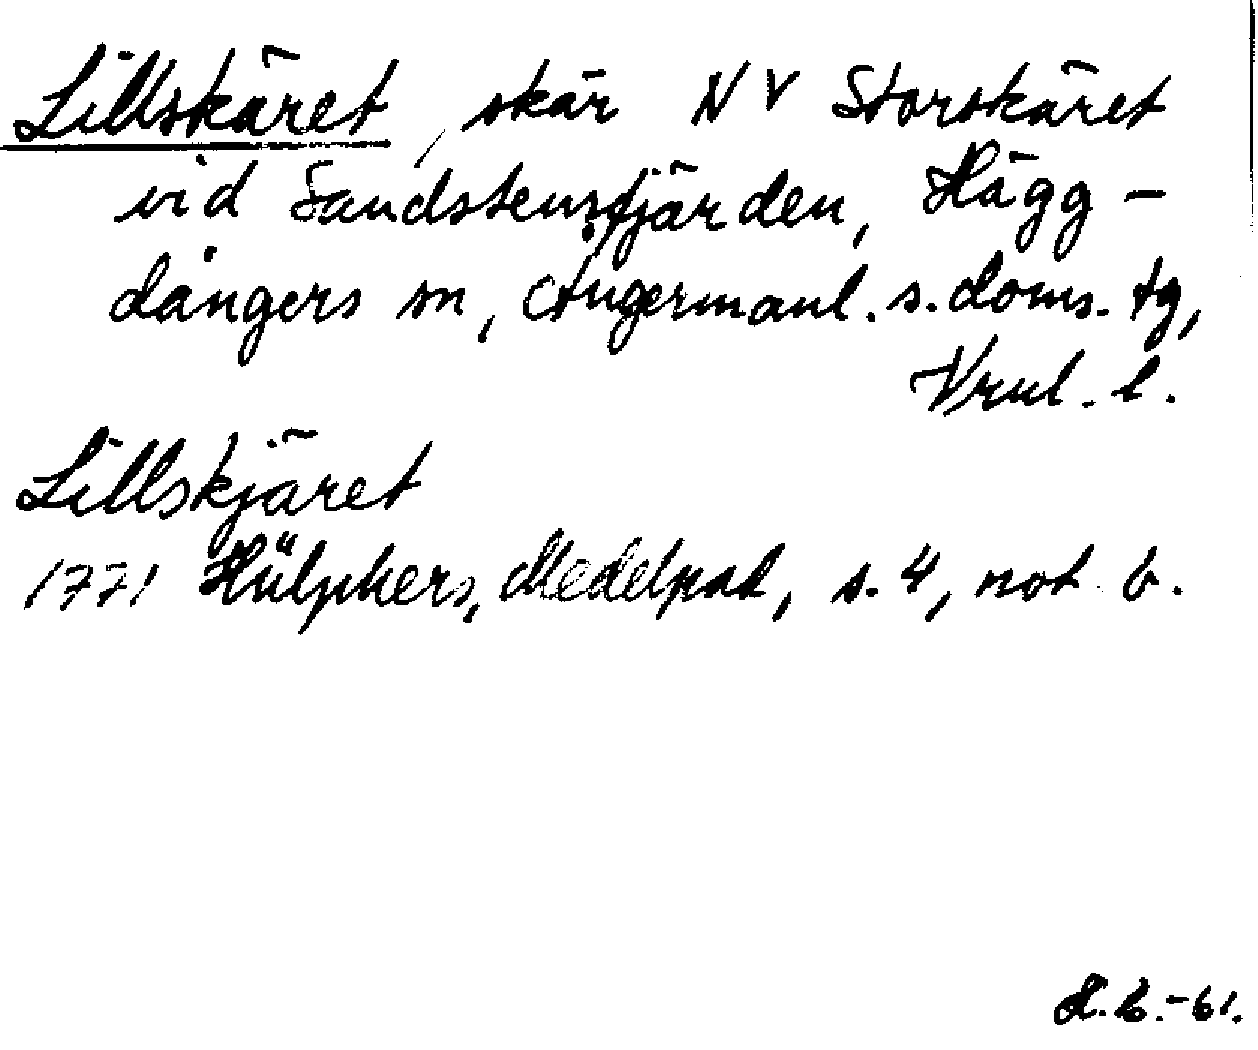 Lillskäret, skär NV Storskäret
vid Sandstensfjärden, Hägg-
dångers sn, Ångermanl. s. doms. tg,
Vrnl. l.
Lillskjäret
1771 Hülphers, Medelpad, s. 4, not b.
H.B.-61.